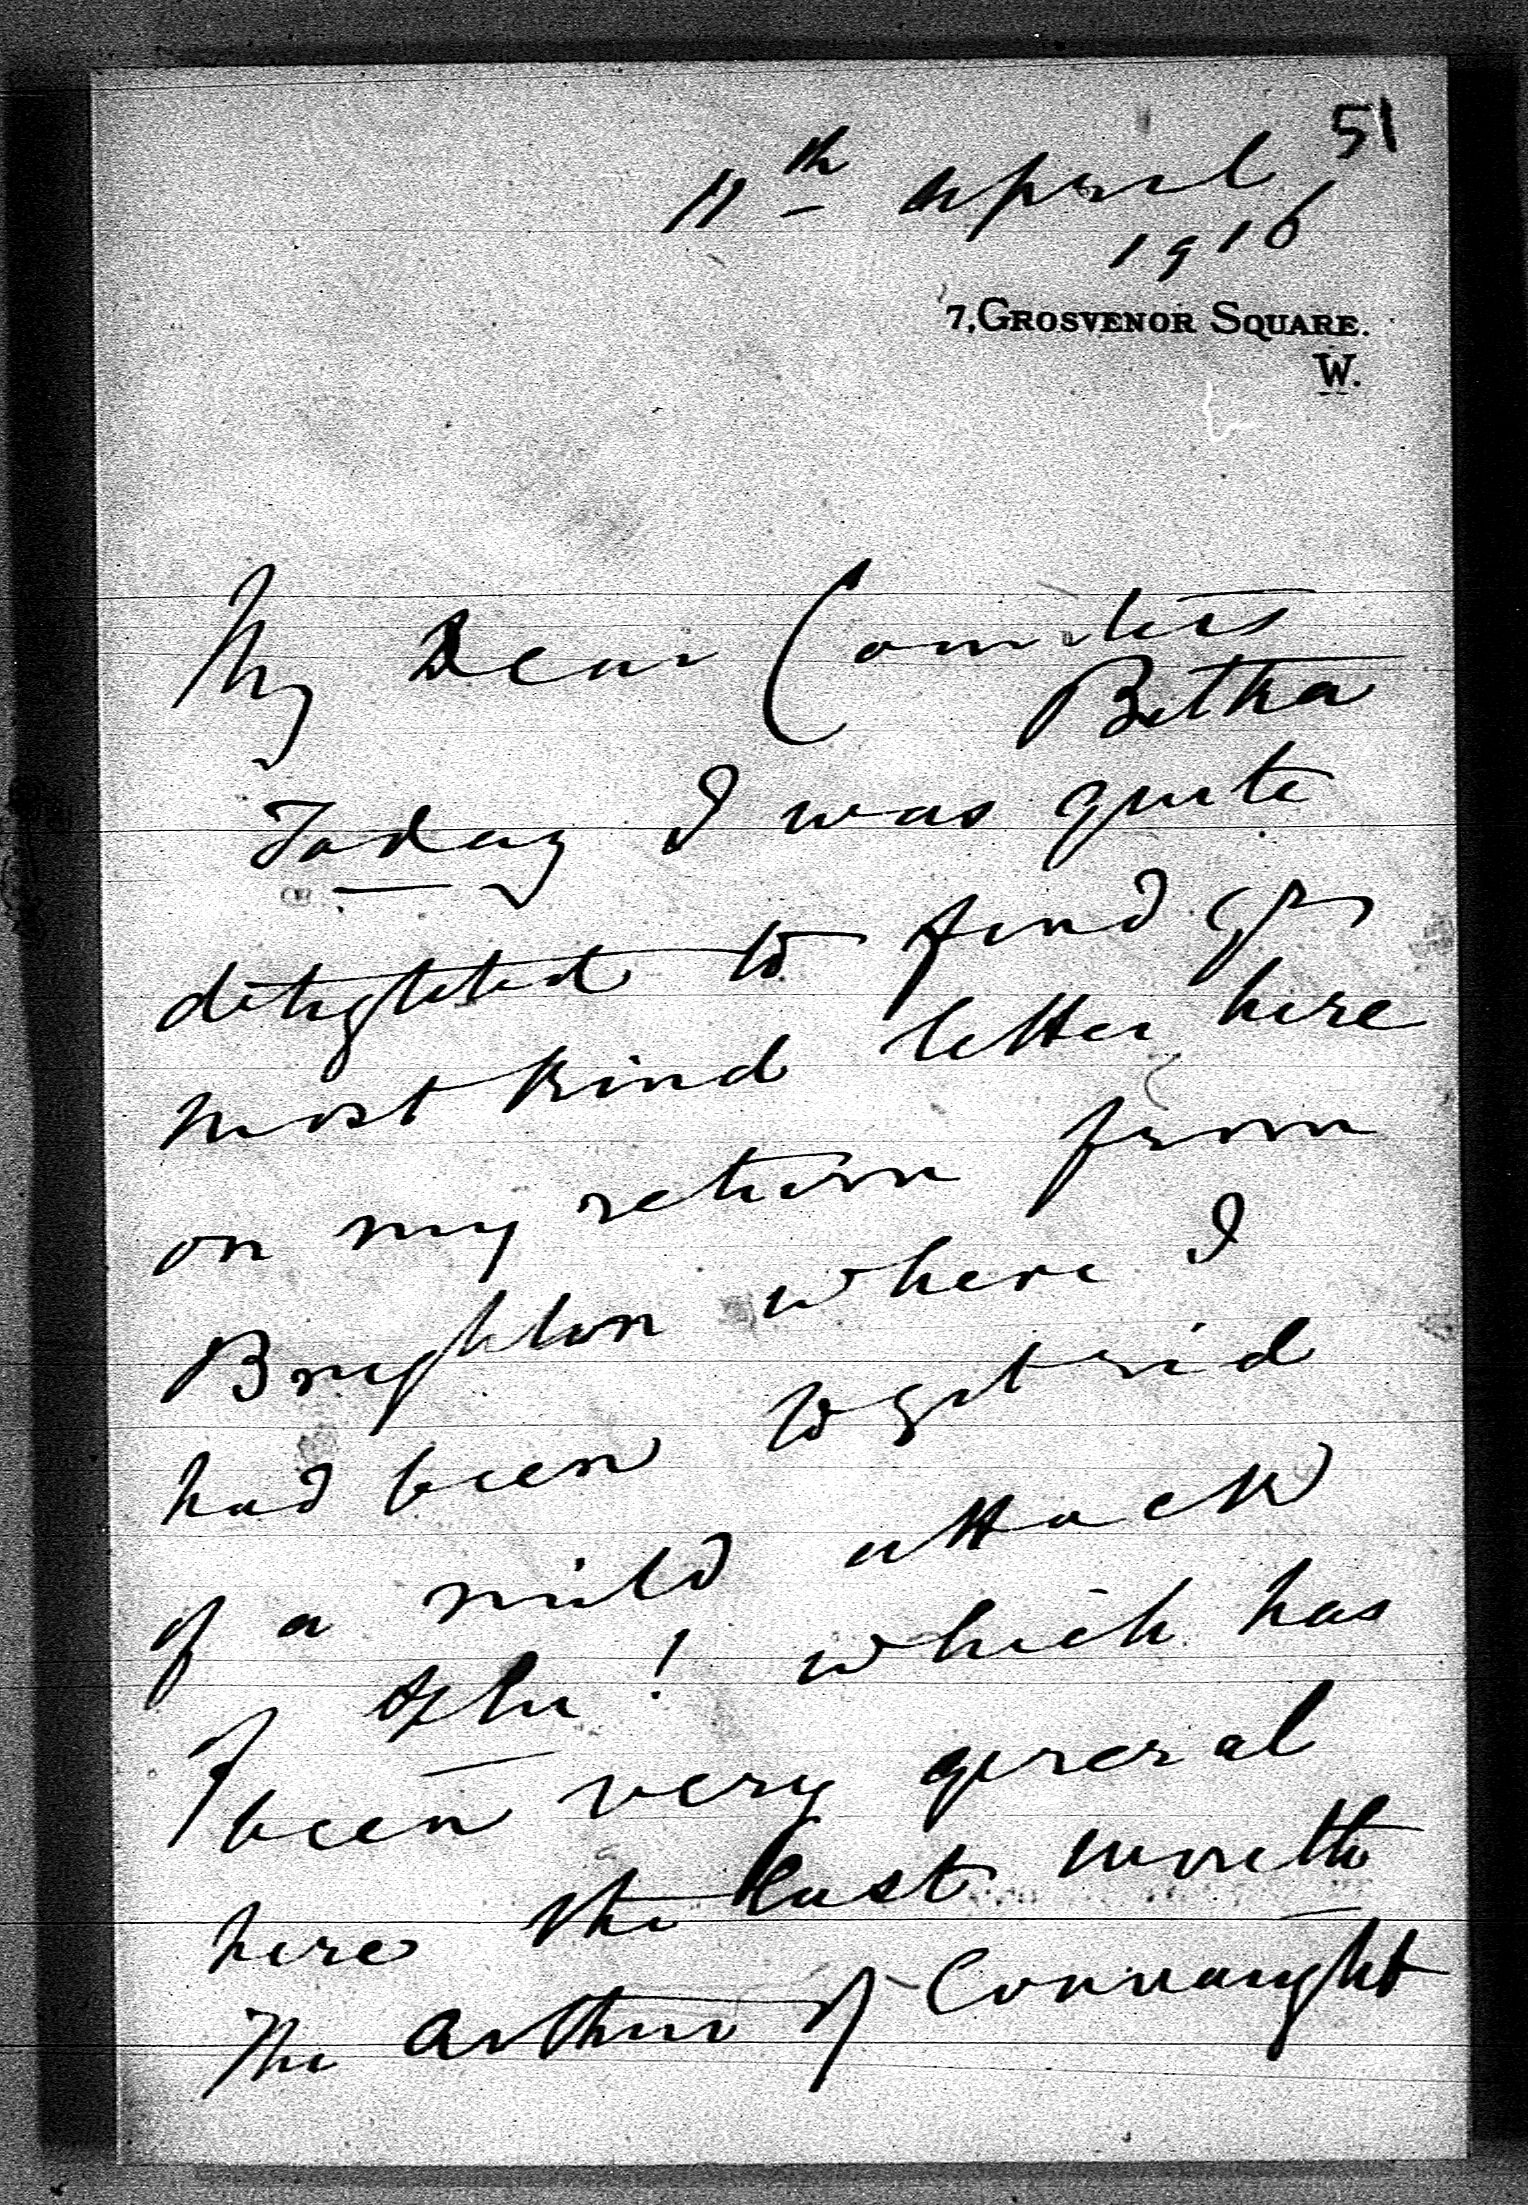 51
11th April
1916
7, GROSVENOR SQUARE.
W.
My Dear Countess
Betha
Today I was quite
delighted to find yr
most kind letter here
on my return from
Brighton where I
had been to get rid
of a mild attack
of Flu! which has
been very general
here the last month
The Arthur of Connaught